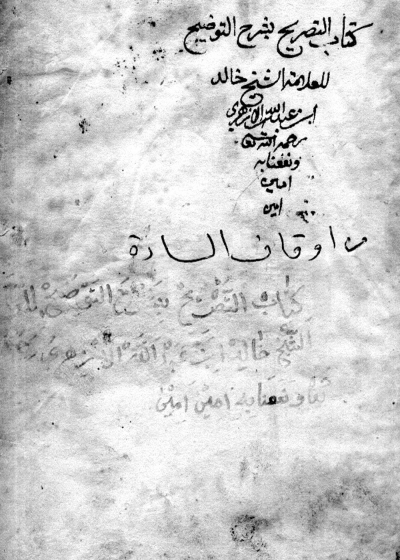 كتاب التصريح بشرح التوضيح
للعلامة الشيخ خالد
ابن عبد الله الازهري
رحمه الله تعالى
ونفعنا به
امين
امين
من اوقاف السادة
كتاب التصريح التوضيح
الشيخ خالد ابن عبد الله الازهري
تعا ونفعنا به امين امين